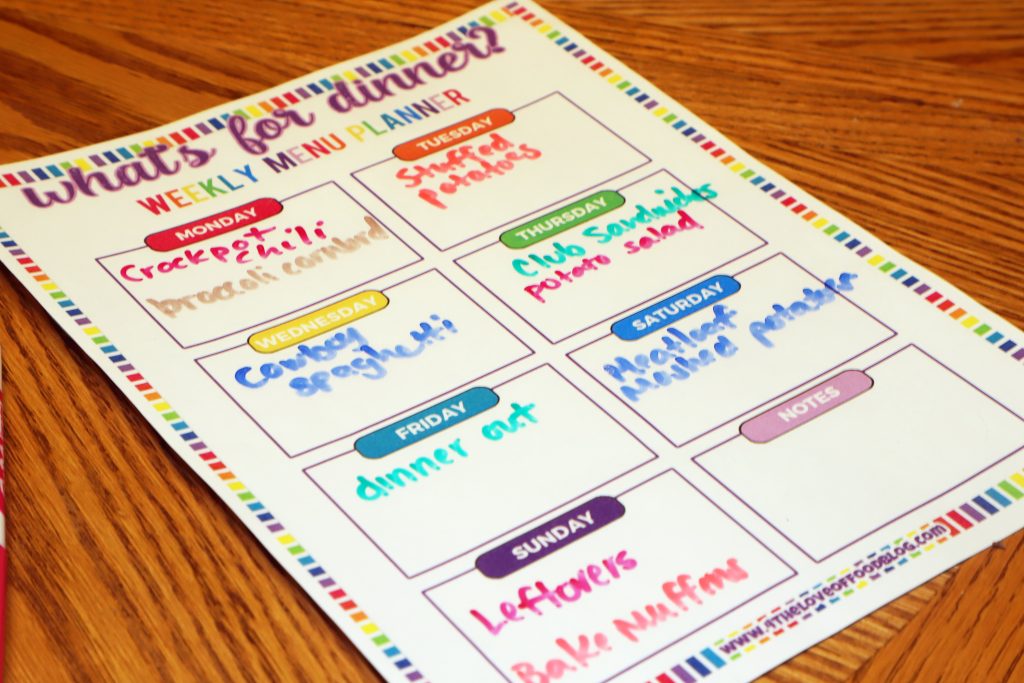 what's for dinner?
WEEKLY MENU PLANNER
MONDAY
Crockpot
chili
broccoli cornbrd
TUESDAY
Stuffed
potatoes
WEDNESDAY
Cowboy
spaghetti
THURSDAY
Club Sandwichs
potato salad
FRIDAY
dinner out
SATURDAY
Meatloaf
Mashed potatoes
SUNDAY
Leftovers
Bake Muffins
NOTES
www.4THELOVEOFFOODBLOG.com